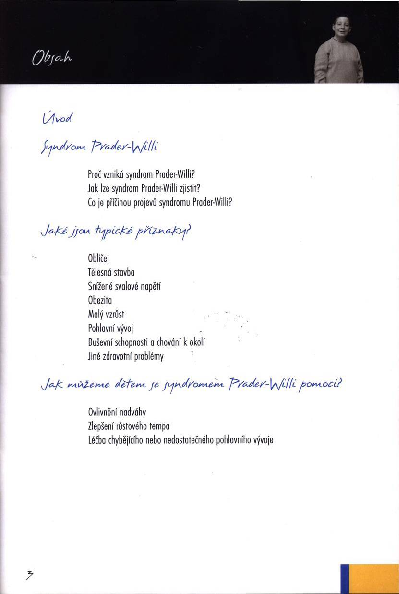 Obsah
Úvod
Syndrom Prader-Willi
Proč vzniká syndrom Prader-Willi?
Jak lze syndrom Prader-Willi zjistit?
Co je příčinou projevů syndromu Prader-Willi?
Jaké jsou typické příznaky?
Obličej
Tělesná stavba
Snížené svalové napětí
Obezita
Malý vzrůst
Pohlavní vývoj
Duševní schopnosti a chování k okolí
Jiné zdravotní problémy
Jak můžeme dětem se syndromem Prader-Willi pomoci?
Ovlivnění nadváhy
Zlepšení růstového tempa
Léčba chybějícího nebo nedostatečného pohlavního vývoje
3